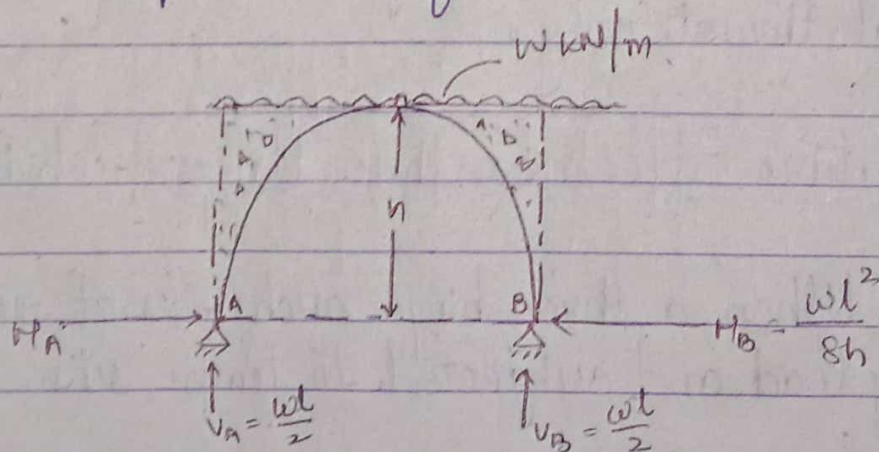 W kN/m
h
A
B
H_A
H_B = wl²/8h
V_A = wl/2
V_B = wl/2